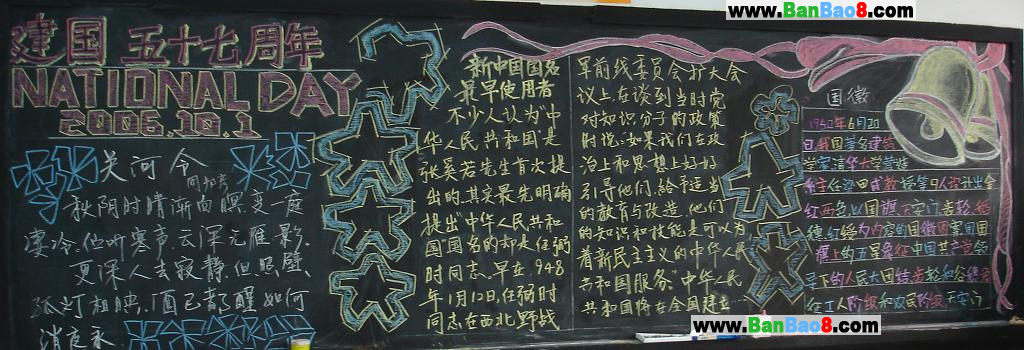 www.BanBao8.com
建国 五十七周年
NATIONAL DAY
2006.10.1
关河令
周邦彦
秋阴时晴渐向暝,变一庭
凄冷.伫听寒声,云深无雁影.
更深人去寂静,但照壁,
孤灯相映.酒已都醒,如何
消夜永
新中国国名
最早使用者
不少人认为"中
华人民共和国"是
张奚若先生首次提
出的,其实最先明确
提出"中华人民共和
国"国名的却是任弼
时同志.早在1948
年1月12日,任弼时
同志在西北野战
军前线委员会扩大会
议上,在谈到当时党
对知识分子的政策
时说:"如果我们在政
治上和思想上好好
引导他们,给予适当
的教育与改造,他们
的知识和技能,是可以为
着新民主主义的中华人民
共和国服务."中华人民
共和国将在全国建立
国徽
1950年6月20
日,我国著名建筑
学家,清华大学营建
系主任梁思成教授等9人设计出金
红两色,以国旗,天安门,齿轮,稻
穗,红绶为内容的国徽图案.国
旗上的五星象征中国共产党领
导下的人民大团结,齿轮和谷穗象
征工人阶级和农民阶级,天安门
www.BanBao8.com